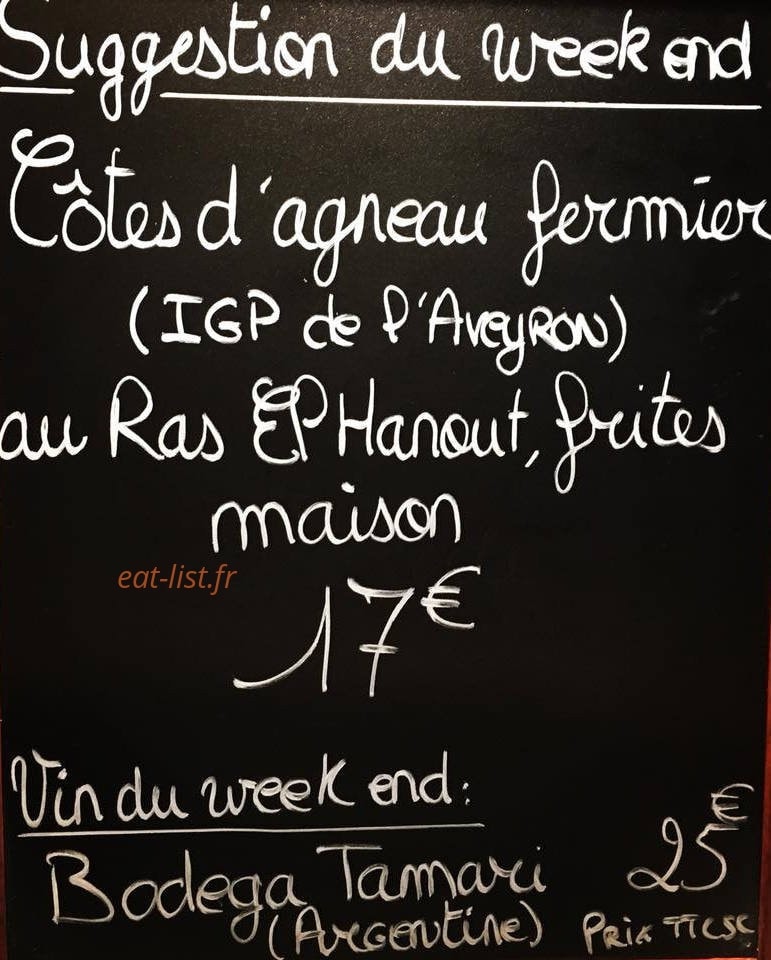 Suggestion du week end
Côtes d'agneau fermier
(IGP de l'Aveyron)
au Ras El Hanout, frites
maison
eat-list.fr
17€
Vin du week end:
Bodega Tamari 25€
(Argentine) Prix TTCSC